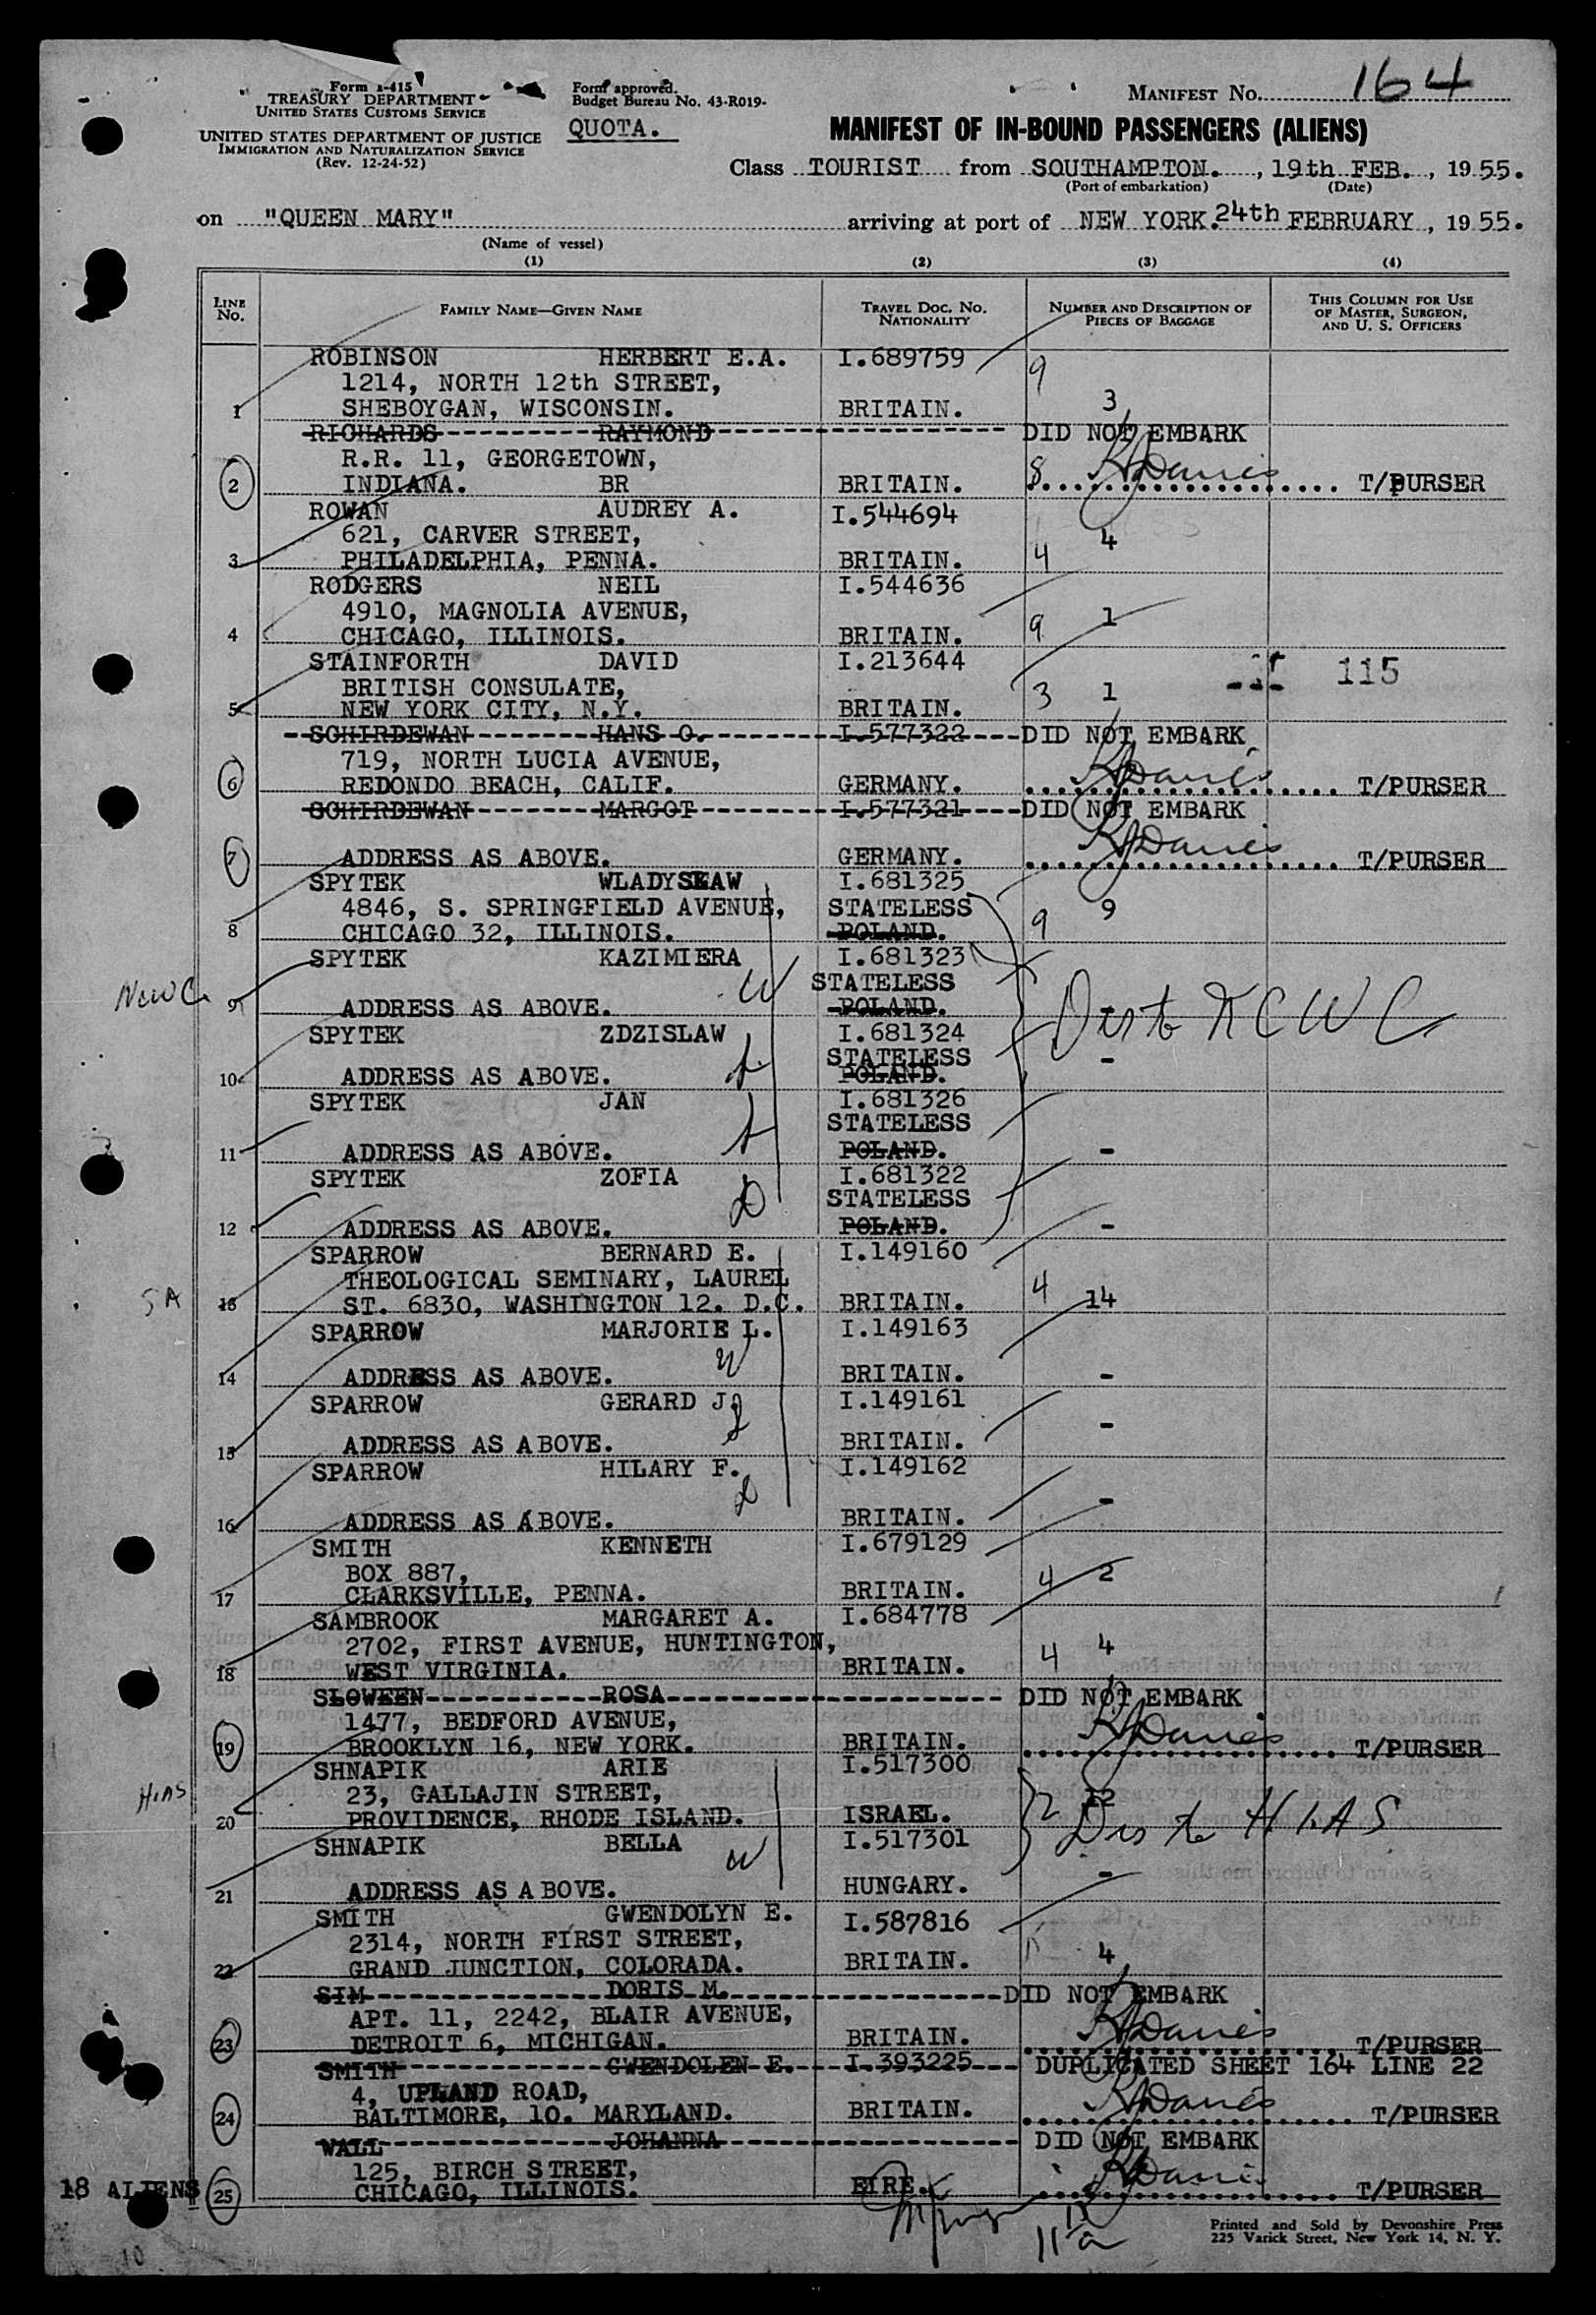 Form a-415
TREASURY DEPARTMENT
UNITED STATES CUSTOMS SERVICE
UNITED STATES DEPARTMENT OF JUSTICE
IMMIGRATION AND NATURALIZATION SERVICE
(Rev. 12-24-52)
Form approved.
Budget Bureau No. 43-R019-
QUOTA.
MANIFEST No. 164
MANIFEST OF IN-BOUND PASSENGERS (ALIENS)
Class TOURIST from SOUTHAMPTON., 19th FEB., 1955.
(Port of embarkation) (Date)
on "QUEEN MARY" arriving at port of NEW YORK. 24th FEBRUARY, 1955.
(Name of vessel)
(1) (2) (3) (4)
LINE No. FAMILY NAME—GIVEN NAME TRAVEL DOC. No. NATIONALITY NUMBER AND DESCRIPTION OF PIECES OF BAGGAGE THIS COLUMN FOR USE OF MASTER, SURGEON, AND U. S. OFFICERS
ROBINSON HERBERT E.A. I.689759 9
1214, NORTH 12th STREET,
1 SHEBOYGAN, WISCONSIN. BRITAIN. 3
RICHARDS RAYMOND DID NOT EMBARK
R.R. 11, GEORGETOWN,
2 INDIANA. BR BRITAIN. 8 Davies T/PURSER
ROWAN AUDREY A. I.544694
621, CARVER STREET, 4
3 PHILADELPHIA, PENNA. BRITAIN. 4
RODGERS NEIL I.544636
4910, MAGNOLIA AVENUE,
4 CHICAGO, ILLINOIS. BRITAIN. 9 1
STAINFORTH DAVID I.213644 115
BRITISH CONSULATE,
5 NEW YORK CITY, N.Y. BRITAIN. 3 1
SCHIRDEWAN HANS O. I.577322 DID NOT EMBARK
719, NORTH LUCIA AVENUE,
6 REDONDO BEACH, CALIF. GERMANY. Davies T/PURSER
SCHIRDEWAN MARGOT I.577321 DID NOT EMBARK
7 ADDRESS AS ABOVE. GERMANY. Davies T/PURSER
SPYTEK WLADYSLAW I.681325
4846, S. SPRINGFIELD AVENUE, STATELESS 9
8 CHICAGO 32, ILLINOIS. POLAND. 9
SPYTEK KAZIMIERA I.681323
W STATELESS
NCWC 9 ADDRESS AS ABOVE. POLAND. - Dis to NCWC
SPYTEK ZDZISLAW I.681324
STATELESS -
10 ADDRESS AS ABOVE. POLAND.
SPYTEK JAN I.681326
STATELESS
11 ADDRESS AS ABOVE. POLAND. -
SPYTEK ZOFIA I.681322
STATELESS
12 ADDRESS AS ABOVE. POLAND. -
SPARROW BERNARD E. I.149160
THEOLOGICAL SEMINARY, LAUREL
SA 13 ST. 6830, WASHINGTON 12. D.C. BRITAIN. 4 14
SPARROW MARJORIE L. I.149163
W
14 ADDRESS AS ABOVE. BRITAIN. -
SPARROW GERARD J. I.149161
15 ADDRESS AS ABOVE. BRITAIN. -
SPARROW HILARY F. I.149162
16 ADDRESS AS ABOVE. BRITAIN. -
SMITH KENNETH I.679129
BOX 887,
17 CLARKSVILLE, PENNA. BRITAIN. 4 2
SAMBROOK MARGARET A. I.684778
2702, FIRST AVENUE, HUNTINGTON,
18 WEST VIRGINIA. BRITAIN. 4 4
SLOWEEN ROSA DID NOT EMBARK
1477, BEDFORD AVENUE,
19 BROOKLYN 16, NEW YORK. BRITAIN. Davies T/PURSER
SHNAPIK ARIE I.517300
HIAS 23, GALLAJIN STREET, 12
20 PROVIDENCE, RHODE ISLAND. ISRAEL. 2 Dis to H.I.A.S
SHNAPIK BELLA I.517301
W
21 ADDRESS AS ABOVE. HUNGARY. -
SMITH GWENDOLYN E. I.587816
2314, NORTH FIRST STREET,
22 GRAND JUNCTION, COLORADA. BRITAIN. 4
SIM DORIS M. DID NOT EMBARK
APT. 11, 2242, BLAIR AVENUE,
23 DETROIT 6, MICHIGAN. BRITAIN. Davies T/PURSER
SMITH GWENDOLEN E. I.393225 DUPLICATED SHEET 164 LINE 22
4, UPLAND ROAD,
24 BALTIMORE, 10. MARYLAND. BRITAIN. Davies T/PURSER
WALL JOHANNA DID NOT EMBARK
125, BIRCH STREET,
18 ALIENS 25 CHICAGO, ILLINOIS. EIRE. Davies T/PURSER
Printed and Sold by Devonshire Press
225 Varick Street, New York 14, N. Y.
10